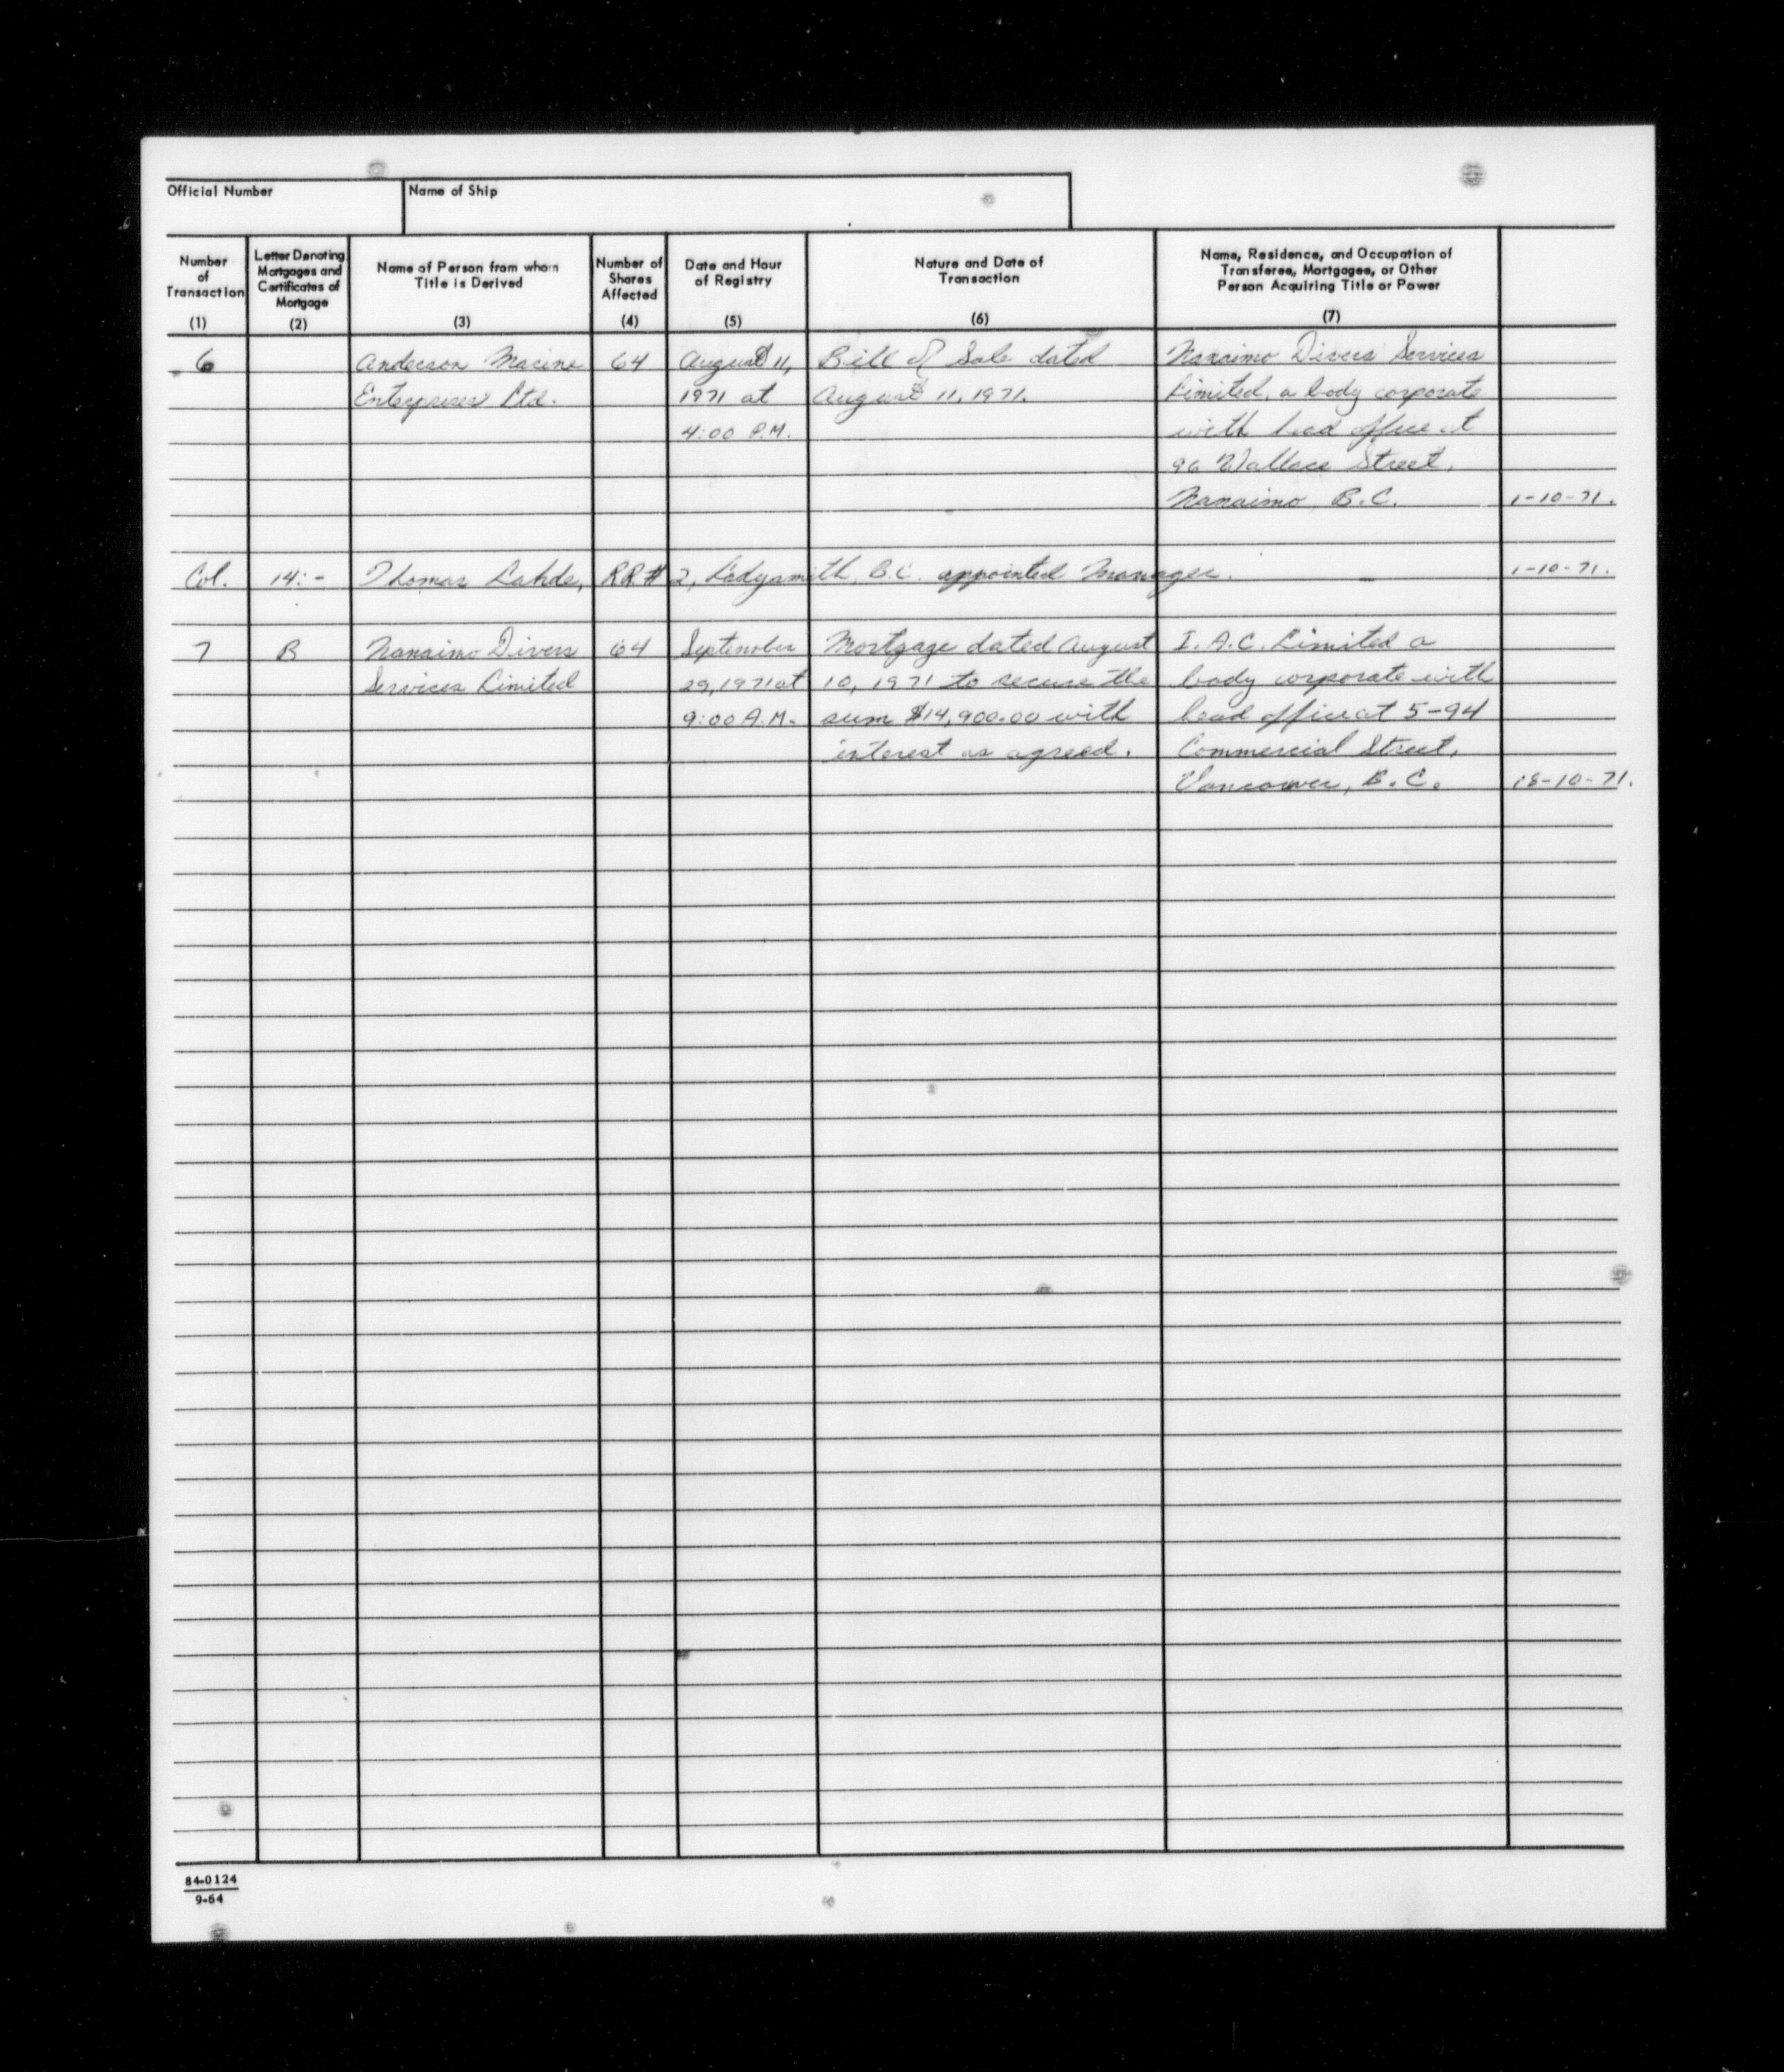 Official Number
Name of Ship
Number of Transaction (1)
Letter Denoting Mortgages and Certificates of Mortgage (2)
Name of Person from whom Title is Derived (3)
Number of Shares Affected (4)
Date and Hour of Registry (5)
Nature and Date of Transaction (6)
Name, Residence, and Occupation of Transferee, Mortgagee, or Other Person Acquiring Title or Power (7)
6 Anderson Marine 64 August 11, Bill of Sale dated Nanaimo Divers Services
Enterprises Ltd. 1971 at August 11, 1971. Limited, a body corporate
4:00 P.M. with head office at
96 Wallace Street,
Nanaimo, B.C. 1-10-71.
Col. 14:- Thomas Lahde, RR# 2, Ladysmith, B.C. appointed Manager. 1-10-71.
7 B Nanaimo Divers 64 September Mortgage dated August I.A.C. Limited a
Services Limited 29, 1971 at 10, 1971 to secure the body corporate with
9:00 A.M. sum $14,900.00 with head office at 5-94
interest as agreed. Commercial Street,
Vancouver, B.C. 18-10-71.
84-0124
9-64